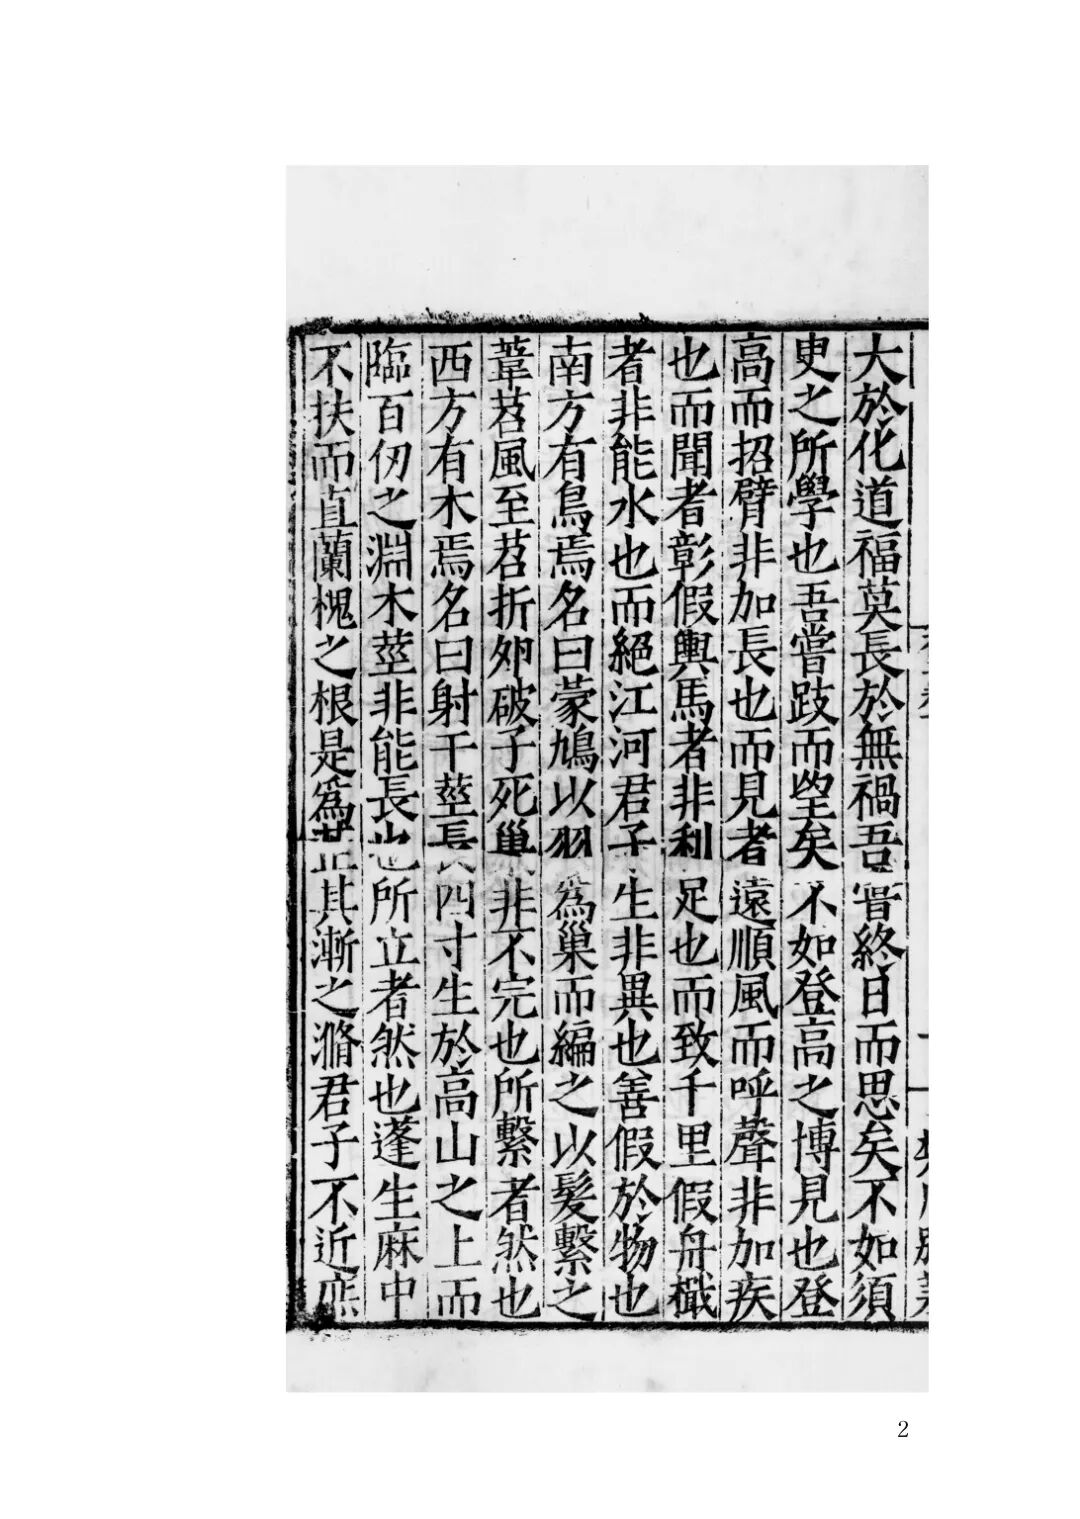 大於化道福莫長於無禍吾甞終日而思矣不如須
臾之所學也吾嘗跂而望矣不如登高之博見也登
高而招臂非加長也而見者遠順風而呼聲非加疾
也而聞者彰假輿馬者非利足也而致千里假舟檝
者非能水也而絕江河君子生非異也善假於物也
南方有鳥焉名曰蒙鳩以羽為巢而編之以髮繫之
葦苕風至苕折卵破子死巢非不完也所繫者然也
西方有木焉名曰射干莖長四寸生於高山之上而
臨百仞之淵木莖非能長也所立者然也蓬生麻中
不扶而直蘭槐之根是爲芷其漸之滫君子不近庶
2